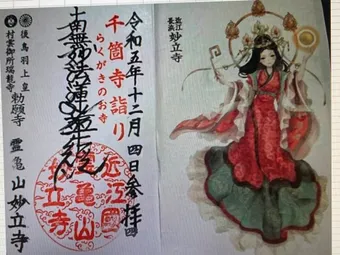 近江
長浜 妙立寺
令和五年十二月四日参拝
千箇寺詣り
らくがきのお寺
南無妙法蓮華経
近江國
霊亀山
妙立寺
後鳥羽上皇 勅願寺
村雲御所瑞龍寺
霊亀山 妙立寺